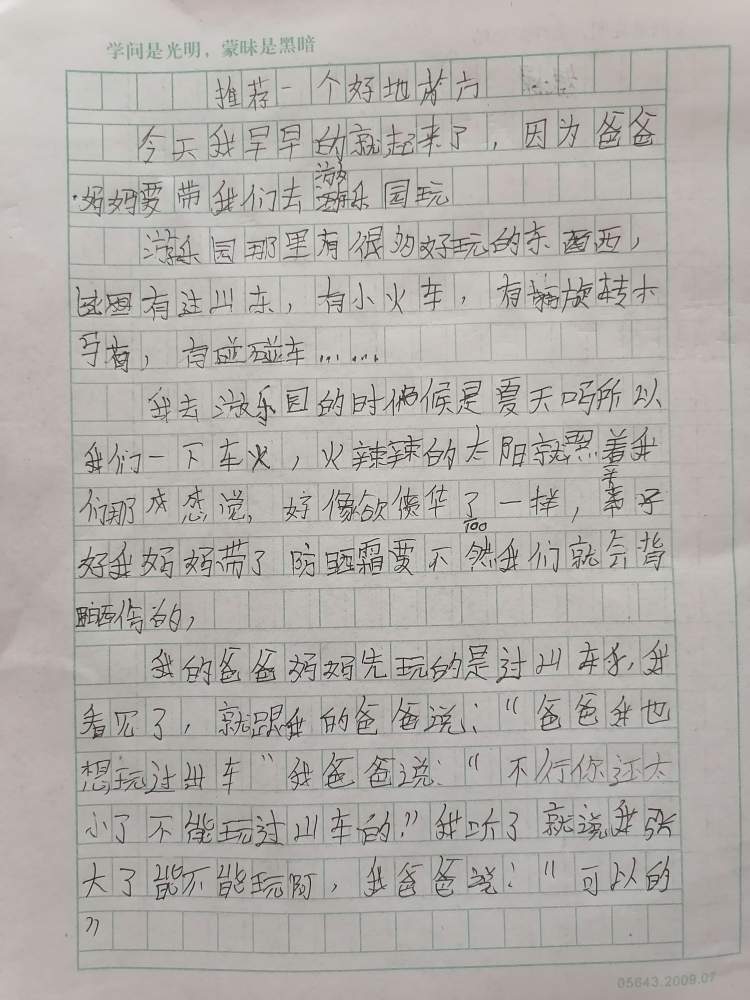 学问是光明，蒙昧是黑暗
推荐一个好地方
今天我早早的就起来了，因为爸爸
妈妈要带我们去游乐园玩
游乐园那里有很多好玩的东西，
有过山车，有小火车，有旋转木
马，有碰碰车……
我去游乐园的时候是夏天吗所以
我们一下车火，火辣辣的太阳就照着我
们那感说，好像欲使华了一样，幸子
100
好我妈妈带了防晒霜要不然我们就会背
晒伤的，
我的爸爸妈妈先玩的是过山车，我
看见了，就跟我的爸爸说：“爸爸我也
想玩过山车“我爸爸说：“不行你还太
小了不能玩过山车的！”我听了就说我张
大了能不能玩阿，我爸爸说：“可以的
”
05643.2009.07